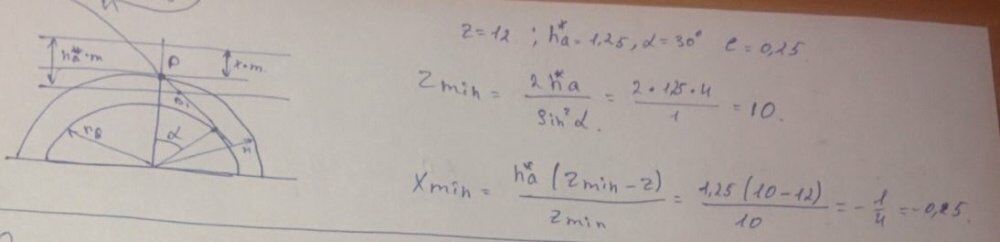 h*a·m
P
x·m
rв
α
z=12 ; h*a=1,25, α=30° c=0,25
Zmin = 2h*a / Sin²α. = 2·125·4 / 1 = 10.
Xmin = h*a (Zmin-z) / Zmin = 1,25(10-12) / 10 = -1/4 = -0,25.